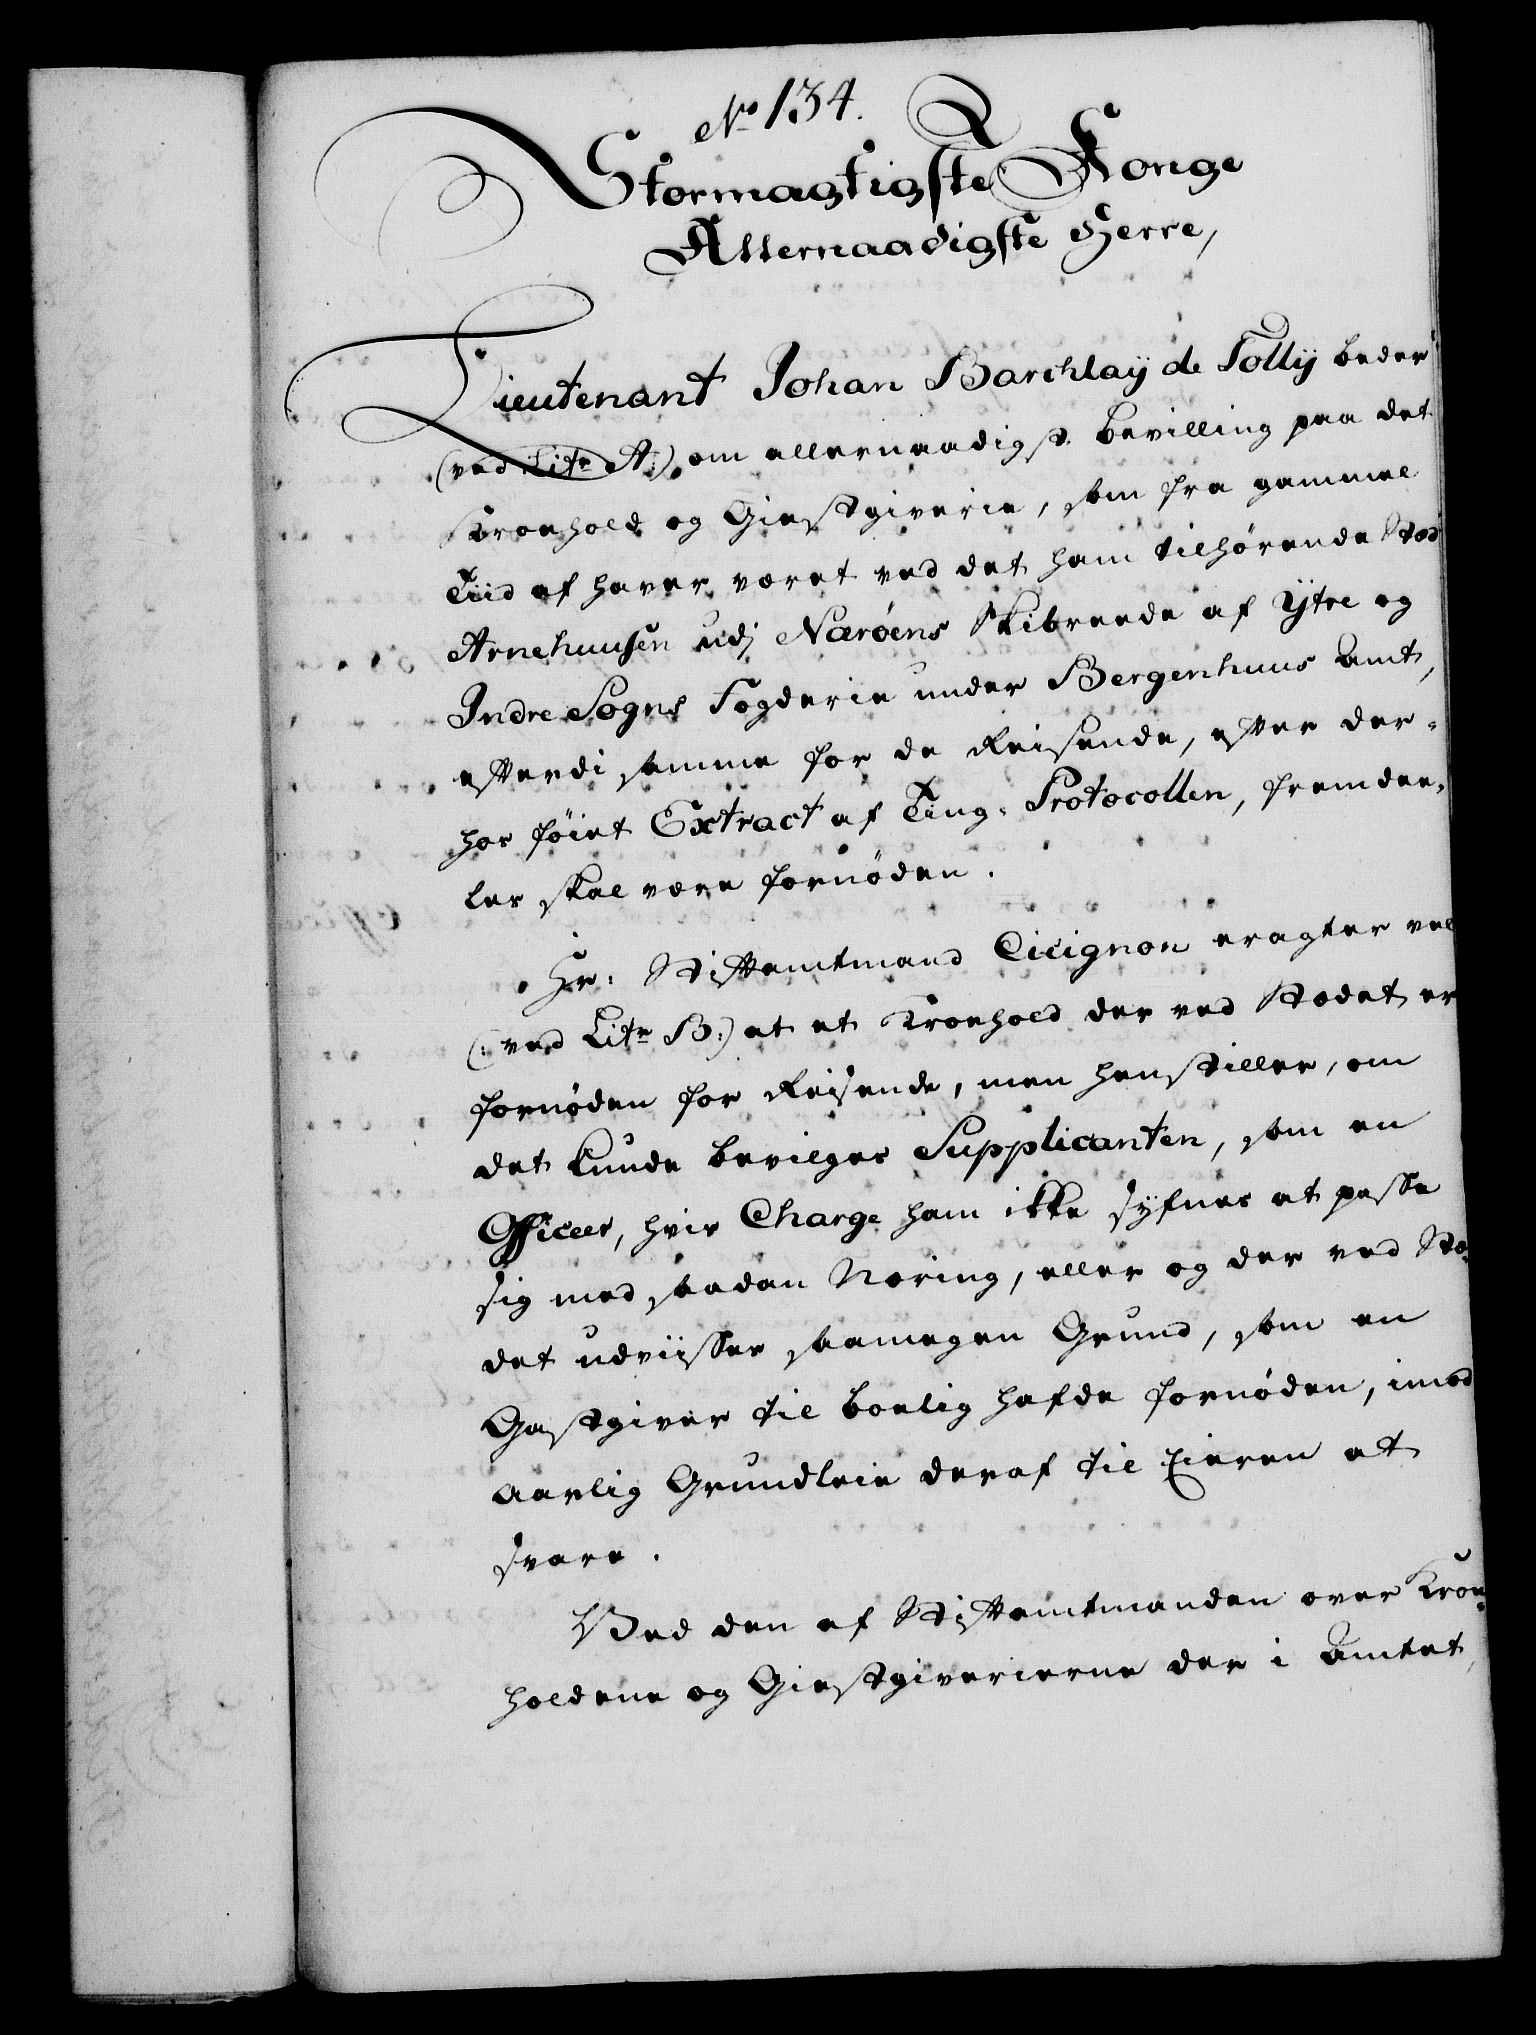 No 134.
Stormagtigste Konge
Allernaadigste Herre,
Lieutenant Johan Barchlaÿ de Tollÿ beder
(ved Litr A:) om allernaadigst Bevilling paa det
Kroehold og Giestgiverie, som fra gammel
Tiid af haver været ved det ham tilhørende Stæd
Arnehuusen udj Nærøens Skibreede af Ÿtre og
Indre Sogns Fogderie under Bergenhuus Amt,
efterdi samme for de Reisende, efter der-
hos føiet Extract af Ting-Protocollen, fremdee-
les skal være fornøden.
Hr: Stiftamtmand Cicignon eragter vel
(: ved Litr B:) at et Kroehold der ved Stædet er
fornøden for Reisende, men henstiller, om
det kunde bevilges Supplicanten, som en
Officeer, hvis Charge ham ikke sÿnes at passe
sig med saadan Næring, eller og der ved Stæ-
det udviisses saamegen Grund, som en
Gæstgiver til boelig hafde fornøden, imod
aarlig Grundleie deraf til Eieren at
svare.
Ved den af Stiftamtmanden over Kroe-
holdene og Giestgiverierne der i Amtet,